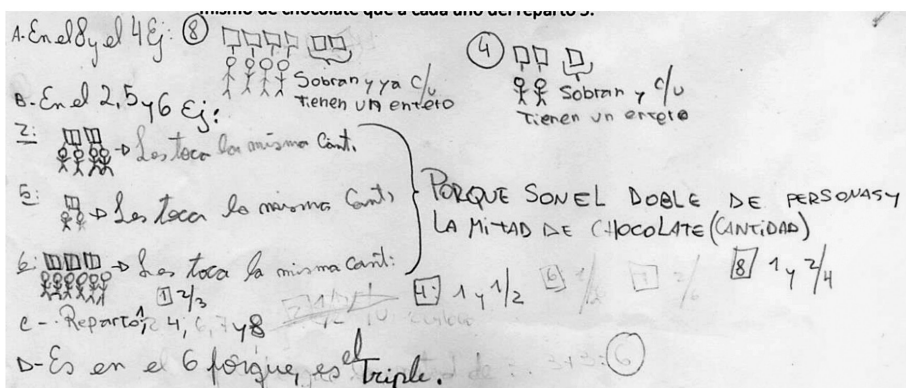 mismo de chocolate que a cada uno del reparto 5.
A. En el 8 y el 4 Ej: 8
Sobran y ya c/u
tienen un entero
4
Sobran y c/u
tienen un entero
B. En el 2, 5 y 6 Ej:
2: → Les toca la misma Cant.
5: → Les toca la misma Cant.
6: → Les toca la misma cant:
PORQUE SON EL DOBLE DE PERSONAS Y
LA MITAD DE CHOCOLATE (CANTIDAD)
1 2/3
4: 1 y 1/2
8 1 y 2/4
C - Reparto 1, 4, 6, 7 y 8
D - Es en el 6 porque, es el Triple.
6